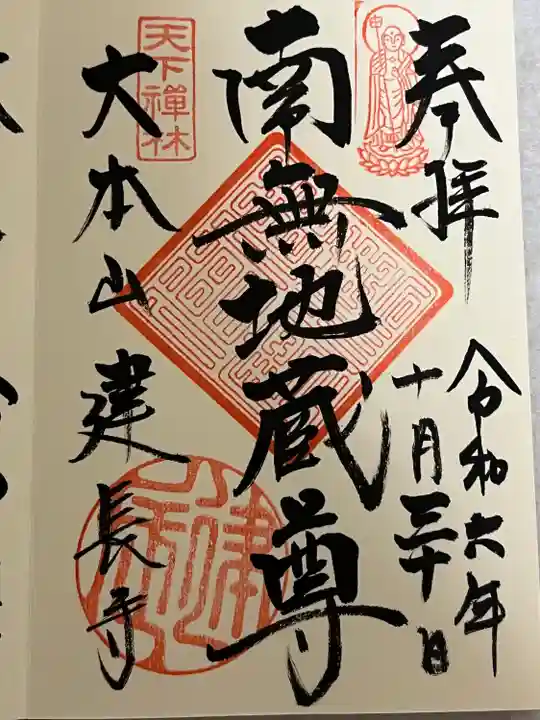 奉拝
令和六年
十月三十日
南無地蔵尊
天下禅林
大本山建長寺